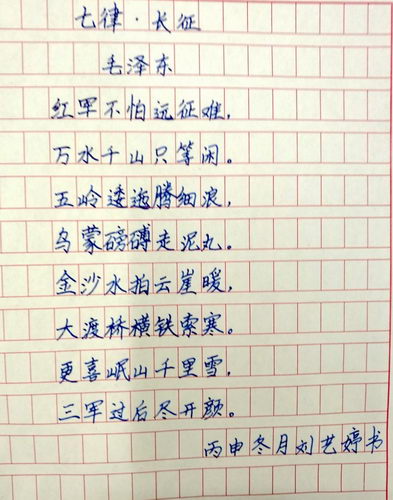 七律·长征
毛泽东
红军不怕远征难,
万水千山只等闲。
五岭逶迤腾细浪,
乌蒙磅礴走泥丸。
金沙水拍云崖暖,
大渡桥横铁索寒。
更喜岷山千里雪,
三军过后尽开颜。
丙申冬月刘艺婷书